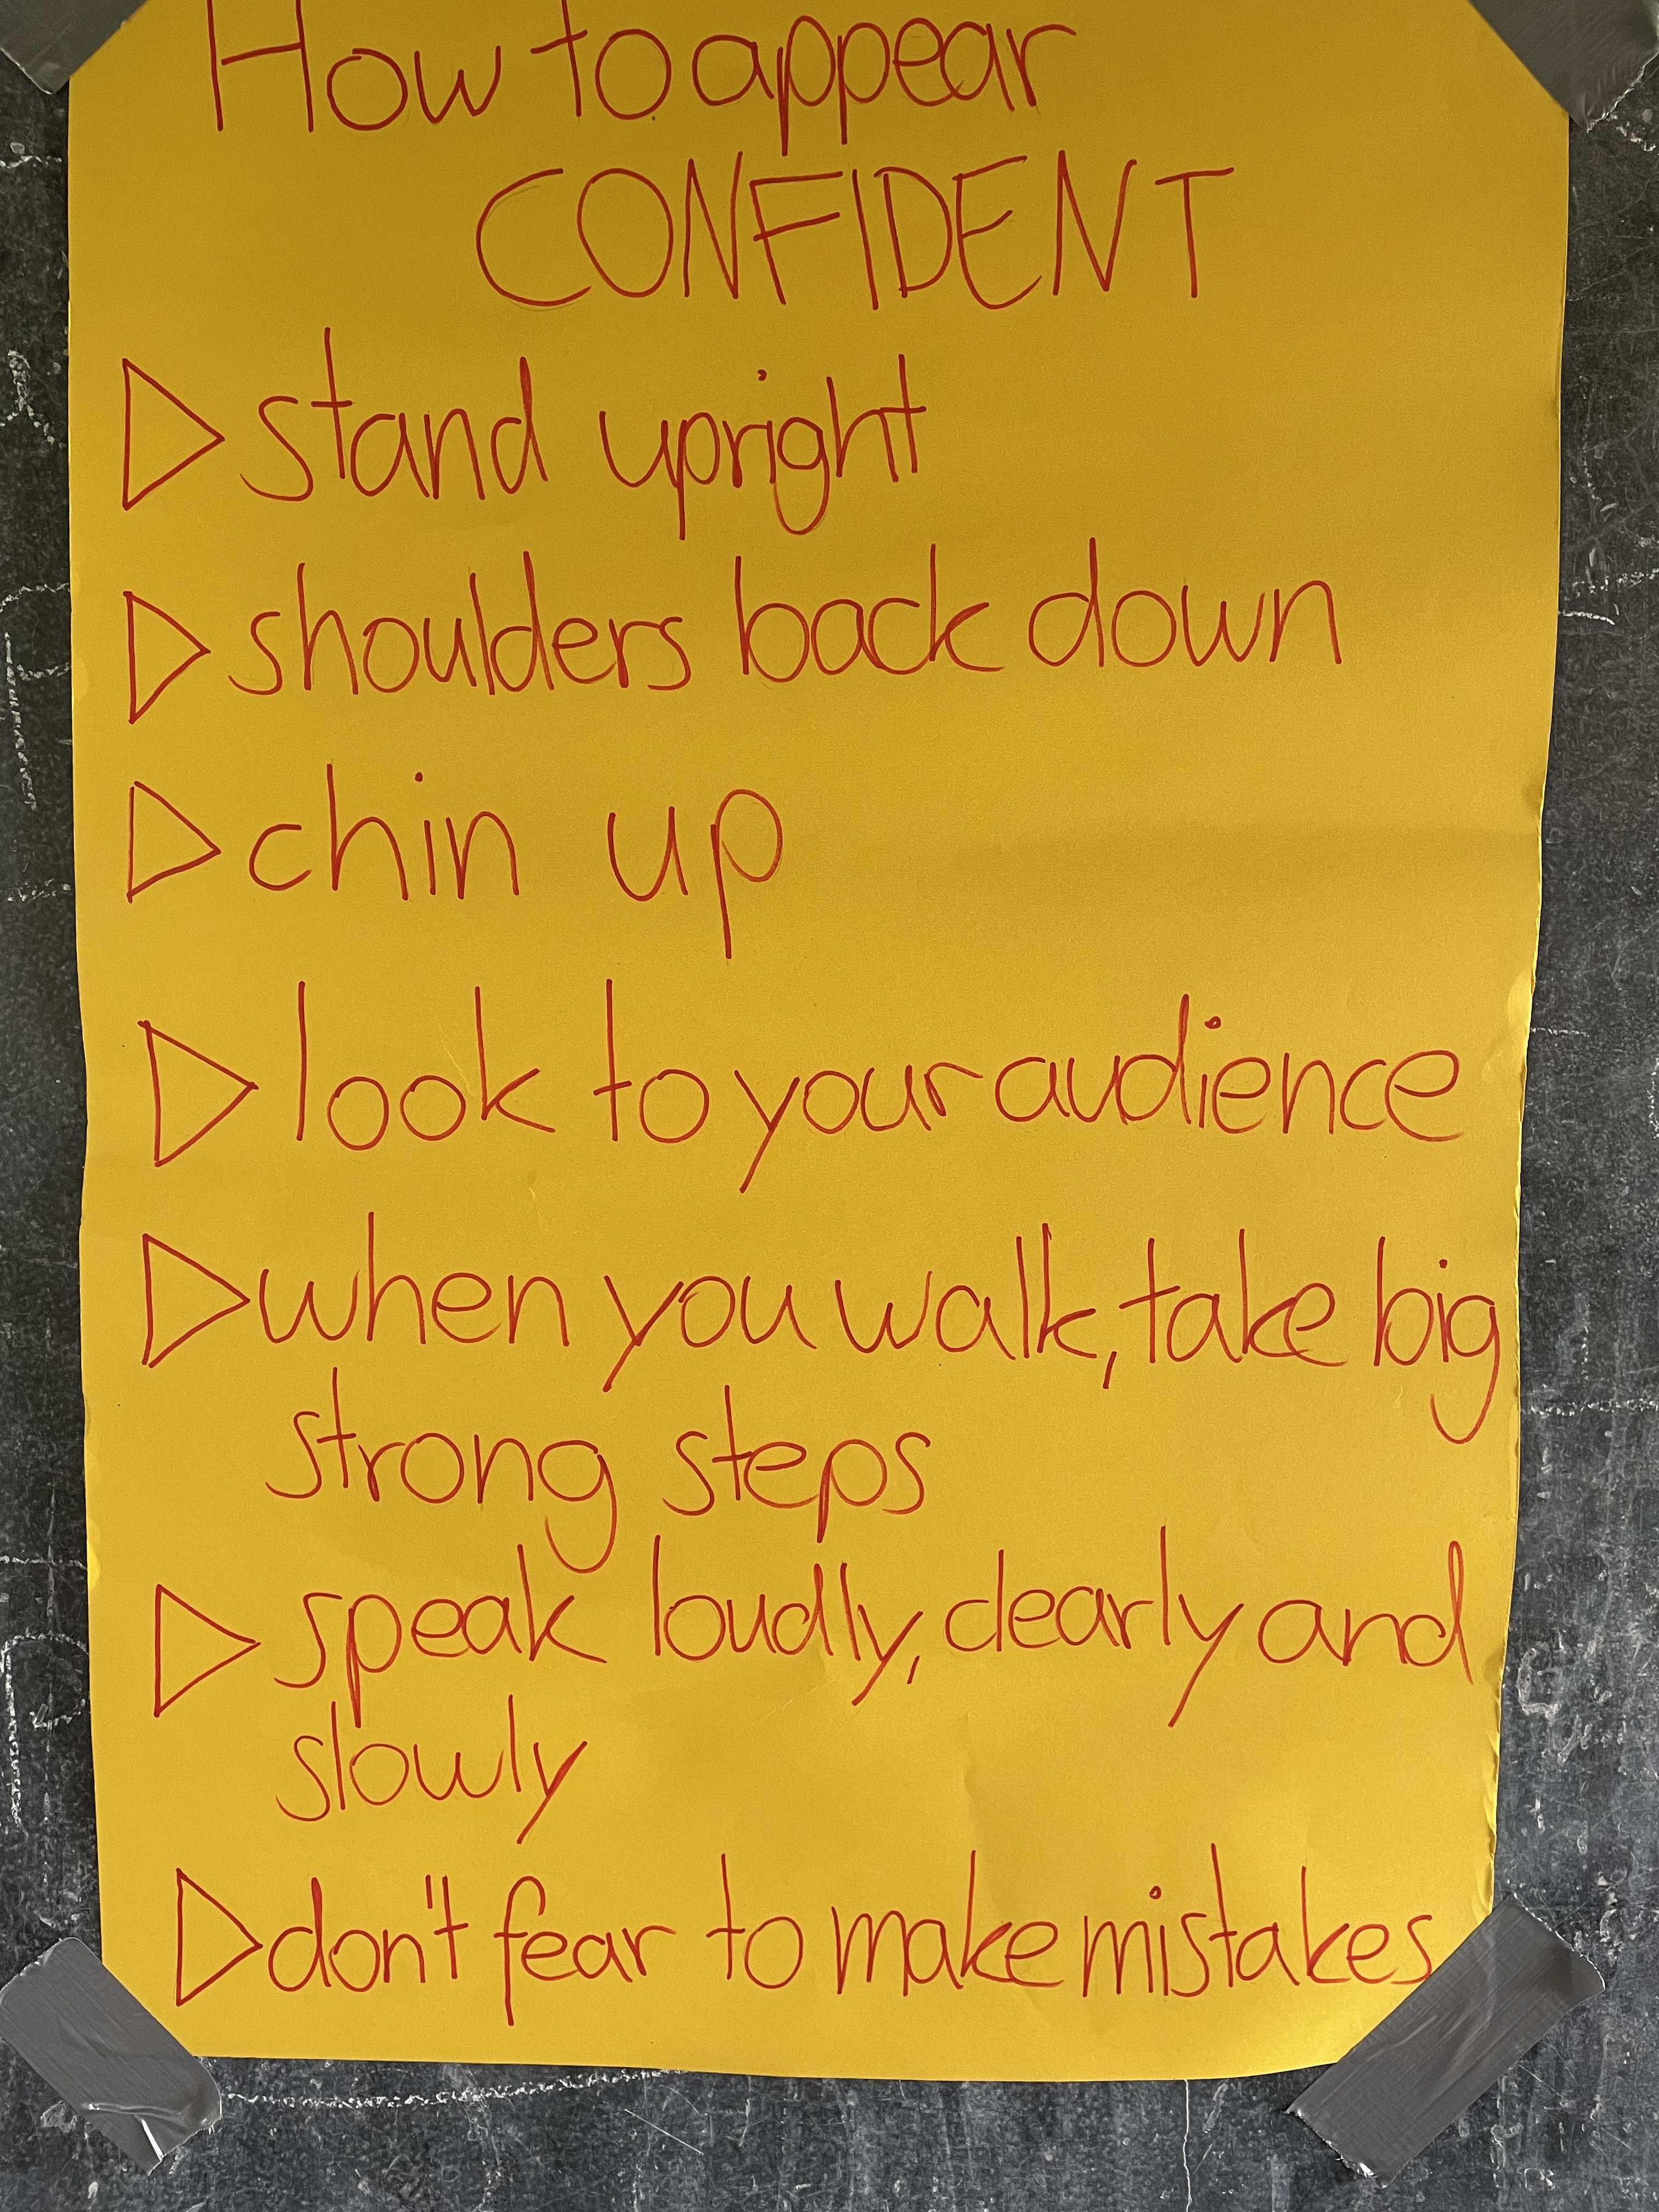 How to appear
CONFIDENT
▷ stand upright
▷ shoulders back down
▷ chin up
▷ look to your audience
▷ when you walk, take big
strong steps
▷ speak loudly, clearly and
slowly
▷ don't fear to make mistakes